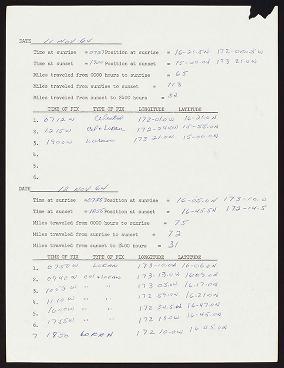 DATE 11 NOV 64
Time at sunrise = 0737 Position at sunrise = 16-21.5N 172-00.5W
Time at sunset = 1900 Position at sunset = 15-00.0N 173 21.0W
Miles traveled from 0000 hours to sunrise = 65
Miles traveled from sunrise to sunset = 113
Miles traveled from sunset to 2400 hours = 52
TIME OF FIX TYPE OF FIX LONGITUDE LATITUDE
1. 0712 N Celestial 172-01.0W 16-21.0N
2. 1215W Cel & Loran 172-54.0W 15-55.0N
3. 1900W Loran 173 21.0W 15-00.0N
4.
5.
6.
DATE 12 NOV 64
Time at sunrise = 0755 Position at sunrise = 16-05.0N 173-10.0
Time at sunset = 1850 Position at sunset = 16-45.5N 172-14.5
Miles traveled from 0000 hours to sunrise = 75
Miles traveled from sunrise to sunset = 72
Miles traveled from sunset to 2400 hours = 31
TIME OF FIX TYPE OF FIX LONGITUDE LATITUDE
1. 0750W LORAN 173-10.0W 16-06.0N
2. 0940W
3. 1053W " " 173 05.0W 16-17.0N
4. 1110W " " 172 59.0W 16-21.0N
5. 1600W " " 172 34.5W 16-47.0N
6. 1755W " " 172 19.0W 16-45.0N
7 1850 LORAN 172 10.0W 16 45.0N